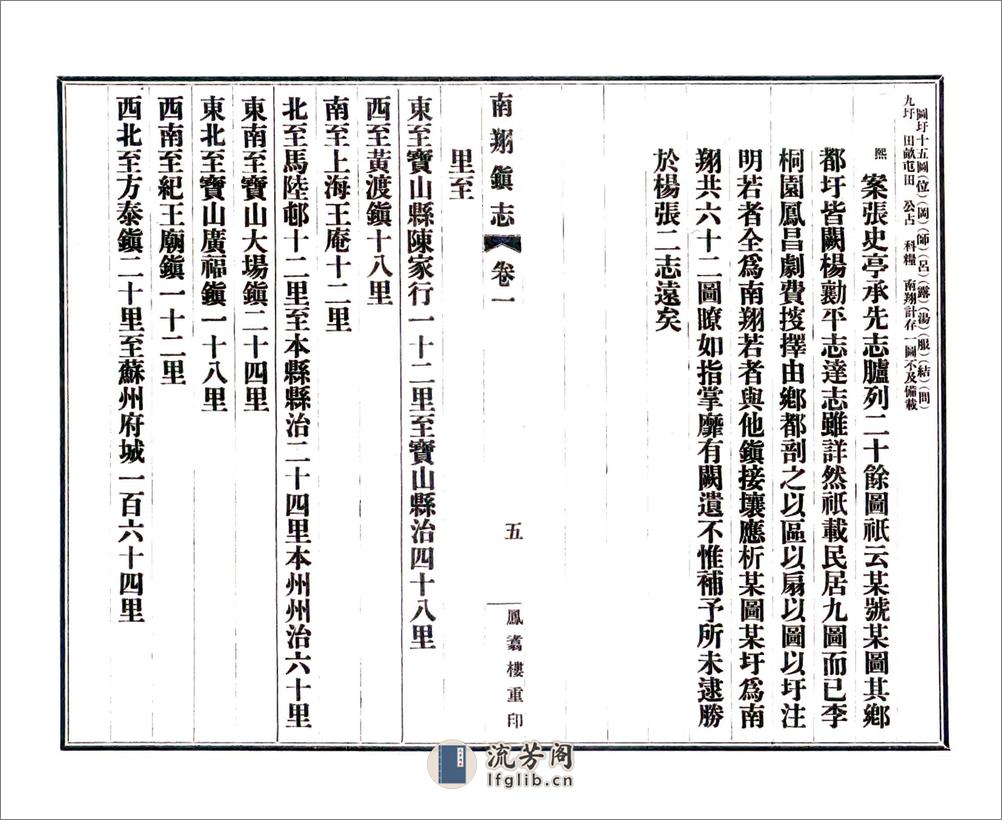 圖圩十五圖(位)(岡)(師)(呂)(露)(湯)(服)(結)(問)
九圩 田畝屯田 公占 科糧 南翔計存一圖不及備載
熙案張史亭承先志臚列二十餘圖祇云某號某圖其鄉
都圩皆闕楊勷平志達志雖詳然祇載民居九圖而已李
桐園鳳昌劇費搜擇由鄉都剖之以區以扇以圖以圩注
明若者全爲南翔若者與他鎭接壤應析某圖某圩爲南
翔共六十二圖瞭如指掌靡有闕遺不惟補予所未逮勝
於楊張二志遠矣
南翔鎭志 卷一 五 鳳翥樓重印
里至
東至寶山縣陳家行一十二里至寶山縣治四十八里
西至黃渡鎭十八里
南至上海王庵十二里
北至馬陸邨十二里至本縣縣治二十四里本州州治六十里
東南至寶山大場鎭二十四里
東北至寶山廣福鎭一十八里
西南至紀王廟鎭一十二里
西北至方泰鎭二十里至蘇州府城一百六十四里
流芳阁
lfglib.cn